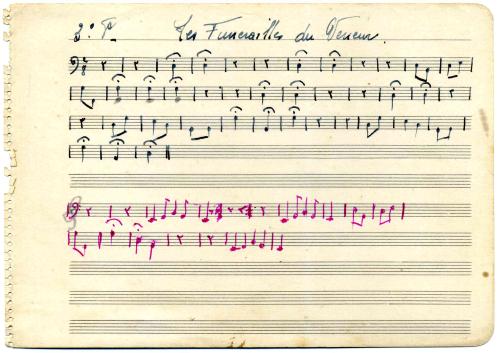 Les Funerailles du Veneur.